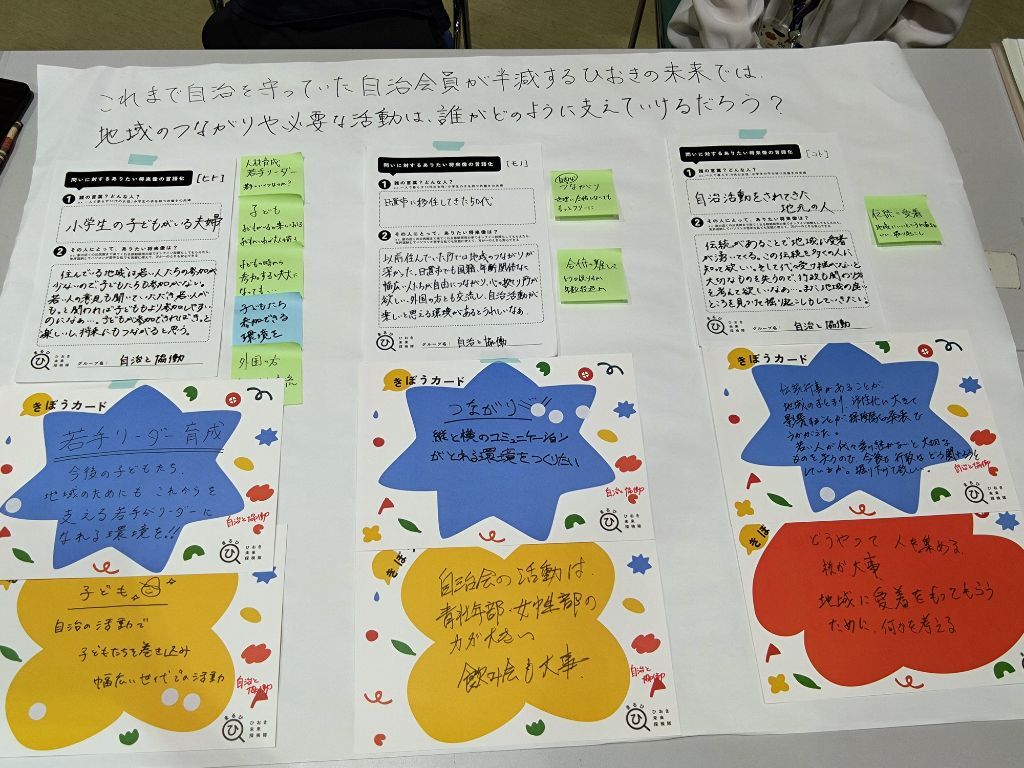 これまで自治を守っていた自治会員が半減するひおきの未来では、
地域のつながりや必要な活動は、誰がどのように支えていけるだろう？
問いに対するありたい将来像の言語化
[ヒト]
1 誰の言葉？どんな人？
小学生の子どもがいる夫婦
2 その人にとって、ありたい将来像は？
住んでいる地域は若い人たちの参加が
少ないので子どもたちも参加がない。
若い人の意見も聞いていただき若い人が
もっと関われば子どもも参加しやすい
のになぁ…。子どもが参加できればきっと
楽しいし、将来にもつながると思う。
グループ名： 自治と協働
人材育成
若手リーダー
子ども
子どもの時から
参加すると大人に
なっても…
子どもたち
参加できる
環境を
外国の方
問いに対するありたい将来像の言語化
[モノ]
1 誰の言葉？どんな人？
日置市に移住してきた50代
2 その人にとって、ありたい将来像は？
以前住んでいた所では地域のつながりが
深かった。日置市でも国籍、年齢関係なく
幅広い人たちが自由につながり、心の拠り所が
欲しい。外国の方とも交流し、自治活動が
楽しいと思える環境があるとうれしいなぁ
グループ名： 自治と協働
つながり
問いに対するありたい将来像の言語化
[コト]
1 誰の言葉？どんな人？
自治活動をされてきた
地元の人
2 その人にとって、ありたい将来像は？
伝統があることで地域に愛着
が湧いてくる。この伝統を多くの人に
知って欲しい。そして代々受け継がないと
大切なものを失うので、行政も関わり方
を考えて欲しいなぁ…。また地域の良い
ところを見つけ掘り起こしもしていきたい
グループ名： 自治と協働
伝統の愛着
きぼうカード
若手リーダー育成
今後の子どもたち、
地域のためにも これからを
支える若手がリーダーに
なれる環境を!!
自治と協働
ひおき
未来
探検隊
きぼうカード
つながり
縦と横のコミュニケーション
がとれる環境をつくりたい
自治と協働
ひおき
未来
探検隊
伝統行事があることが
地域のまとまり、活性化に大きく
影響することが
うかがえた。
若い人が代々受け継がないと大切な
ものを失うので
しているか。掘り下げて欲しい。
自治と協働
ひおき
未来
探検隊
子ども
自治の活動で
子どもたちを巻き込み
幅広いせだいでの活動
自治と
協働
ひおき
未来
探検隊
きぼ
自治会の活動は、
青壮年部・女性部の
力が大きい
飲み会も大事
自治と
協働
ひおき
未来
探検隊
き
どうやって 人を集める
枠が大事
地域に愛着をもってもらう
ために、何かを考える
自治と
協働
ひおき
未来
探検隊